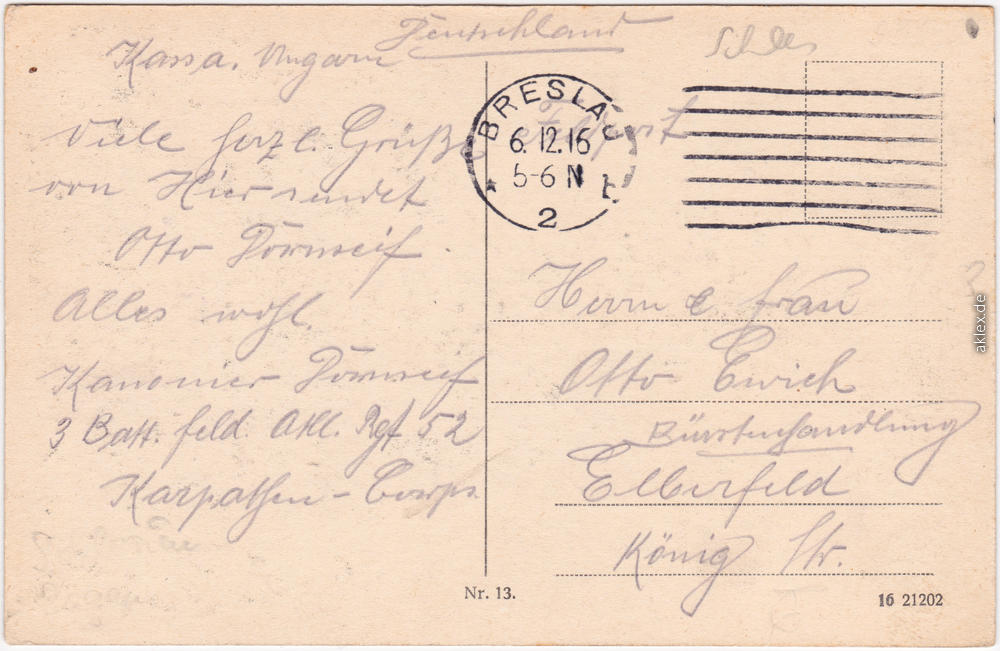 Deutschland
Kassa. Ungarn
Viele herzl. Grüße
von Hier sendet
Otto Dörnseif
Alles wohl.
Kanonier Dörnseif
3 Batt. feld Atl. Rgt 52
Karpathen-Corps
BRESLAU
6.12.16
5-6 N
* 2
Herrn e. frau
Otto Ewich
Bürstenhandlung
Elberfeld
König Str.
Nr. 13.
16 21202
aklex.de